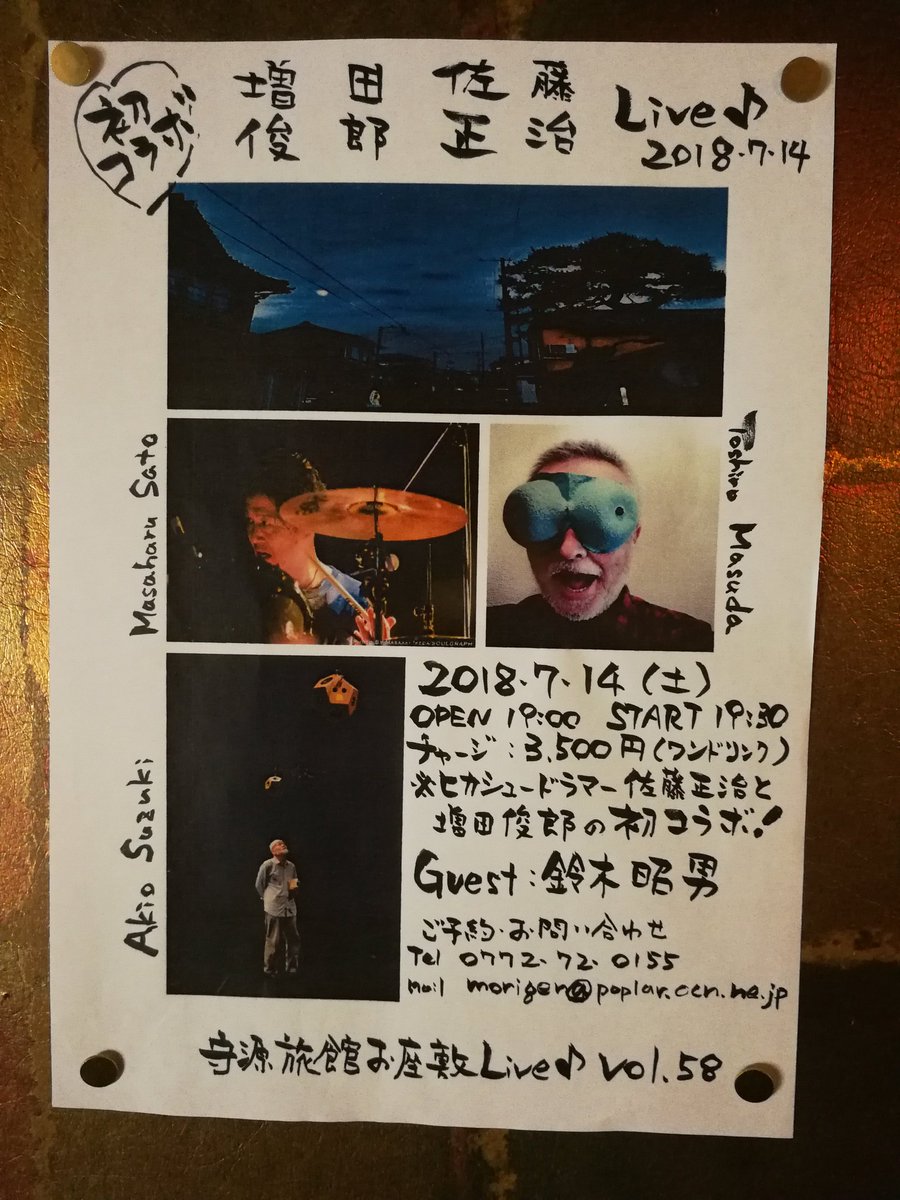 初コラボ
増田 佐藤
俊郎 正治
Live♪
2018・7・14
Masaharu Sato
Toshiro Masuda
Akio Suzuki
2018・7・14(土)
OPEN 19:00 START 19:30
チャージ:3,500円(ワンドリンク)
※ヒカシュードラマー佐藤正治と
増田俊郎の初コラボ!
Guest:鈴木昭男
ご予約・お問い合わせ
Tel 0772-72-0155
mail morigen@poplar.ocn.ne.jp
守源旅館お座敷Live♪ vol.58